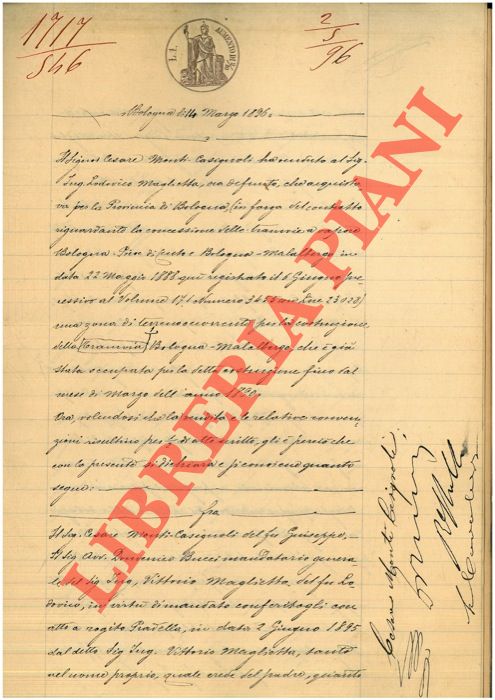 1717
546
2
5
96
L. 1.
AUMENTO DI 2/10
Bologna li 14 Marzo 1896.
Il Signor Cesare Monti-Casignoli ha venduto al Sig.
Ing. Lodovico Maglietta, ora defunto, che acquista-
va per la Provincia di Bologna, (in forza del contratto
riguardante la concessione delle tramvie a vapore
Bologna-Pieve di Cento e Bologna-Malalbergo in
data 22 Maggio 1888 qui registrato il 6 Giugno suc-
cessivo al Volume 171 Numero 3454 con Lire
una zona di terreno occorrente per la costruzione
della (Tramvia) Bologna-Malalbergo, che è già
stata occupata per la detta costruzione fino dal
mese di Marzo dell'anno 1890.
Ora, volendosi che la vendita e le relative conven-
zioni risultino per di atto scritto, gli è perciò che
con la presente si dichiara e si conviene quanto
segue:
fra
Il Sig. Cesare Monti-Casignoli del fu Giuseppe,
Il Sig. Avv. Domenico Bucci mandatario genera-
le del Sig. Ing. Vittorio Maglietta, del fu Lo-
dovico, in virtù di mandato conferitogli con
atto a rogito Pradella, in data 2 Giugno 1895
dal detto Sig. Ing. Vittorio Maglietta, tanto
nel nome proprio, quale erede del padre, quanto
Cesare Monti Casignoli
LIBRERIA PIANI